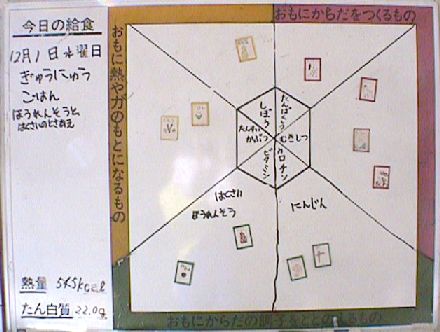 今日の給食
12月1日水曜日
ぎゅうにゅう
ごはん
ほうれんそうと
はくさいのごまあえ
熱量 545kcal
たん白質 22.0g
おもに熱や力のもとになるもの
おもにからだをつくるもの
しぼう
たんすいかぶつ
たんぱくしつ
むきしつ
カロチン
ビタミンC
はくさい
ほうれんそう
にんじん
おもにからだの調子をととのえるもの